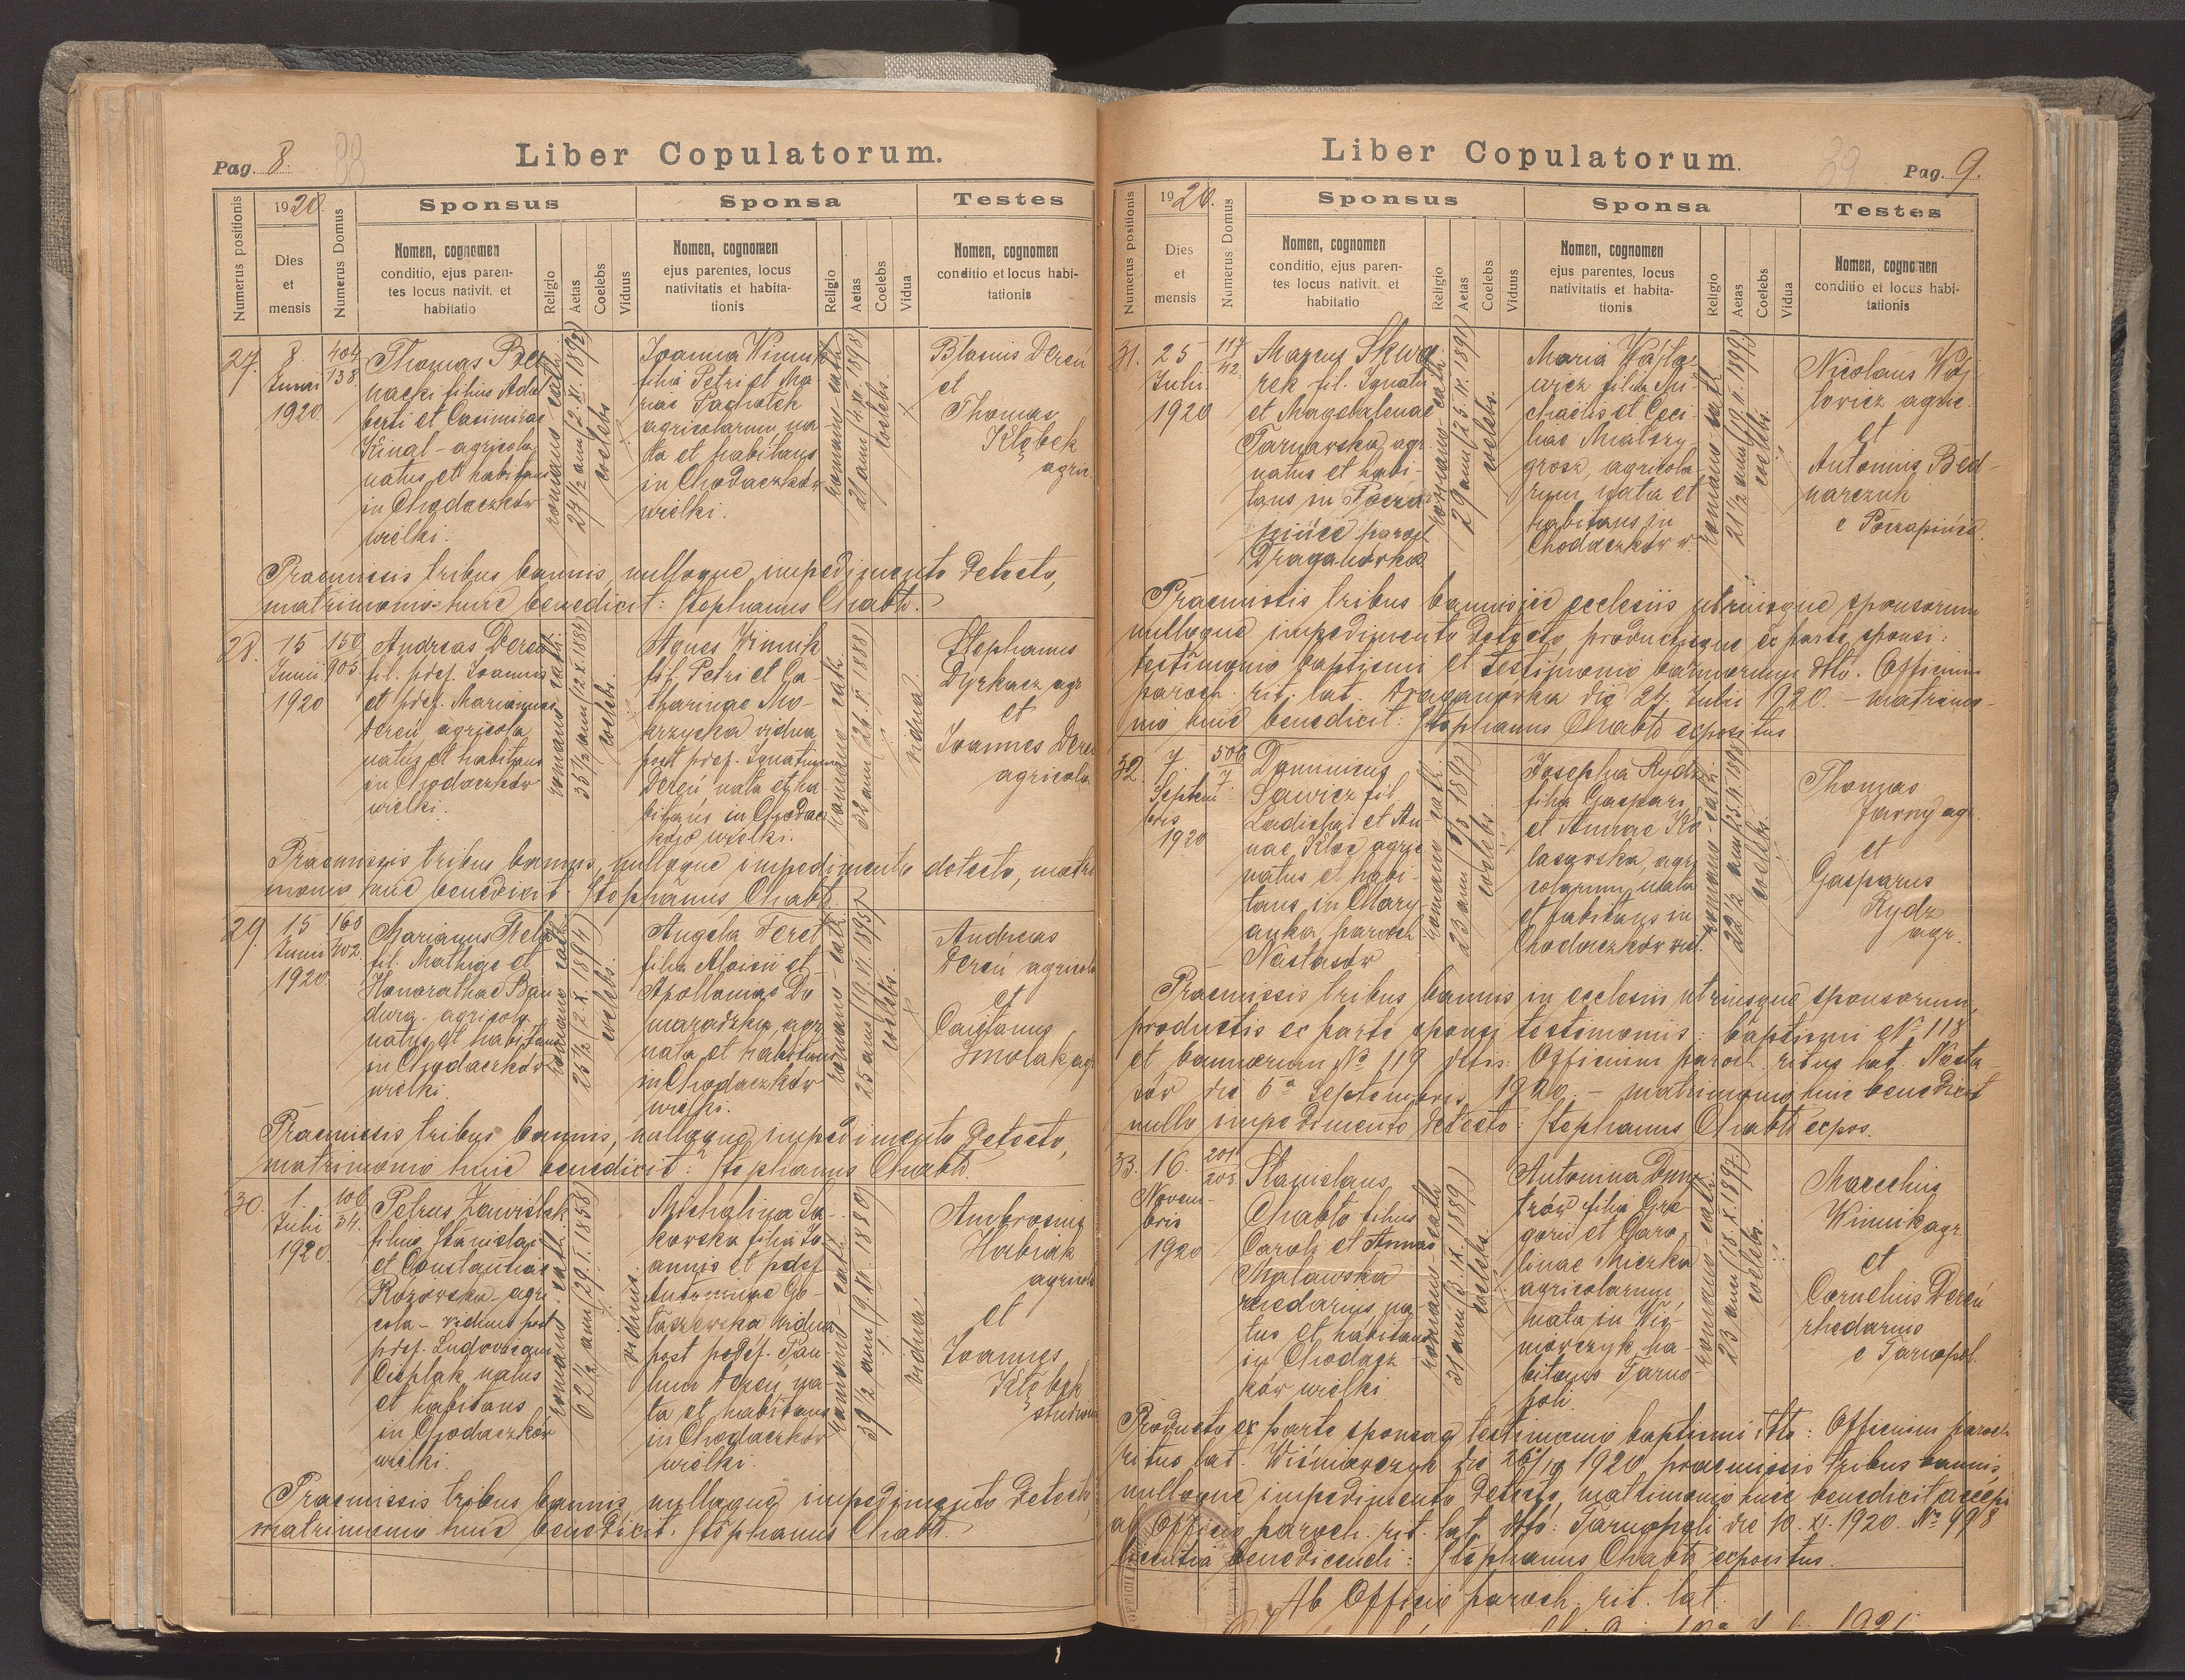 Pag. 8.
Liber Copulatorum.
Numerus positionis
1920.
Dies
et
mensis
Numerus Domus
Sponsus
Nomen, cognomen
conditio, ejus paren-
tes locus nativit. et
habitatio
Religio
Aetas
Coelebs
Viduus
Sponsa
Nomen, cognomen
ejus parentes, locus
nativitatis et habita-
tionis
Religio
Aetas
Coelebs
Vidua
Testes
Nomen, cognomen
conditio et locus habi-
tationis
27.
8.
Junii
1920
404
138
Thomas
filius Adal
berti et Casimirae
agricola
natus et habitans
in Chodaczków
wielki.
romano cath.
27 1/2 ann
coelebs
Joanna Winnik
filia Petri et Ma
riae
agricolarum na-
ta et habitans
in Chodaczków
wielki.
romano cath.
21 ann
coelebs.
Blasius Dereń
et
Thomas
Kłębek
agric.
Praemissis tribus bannis, nulloque impedimento detecto,
matrimonio huic benedicit: Stephanus Chabło.
28.
15
Junii
1920
150
905
Andreas Dereń
fil. pdef. Joannis
et pdef. Mariannae
Dereń agricola
natus et habitans
in Chodaczków
wielki.
romano cath.
35 1/2 ann
coelebs.
Agnes Winnik
fil. Petri et Ca-
tharinae Mo-
krzycka vidua
post pdef. Ignatium
Dereń nata et ha-
bitans in Chodacz
ków wielki.
romano cath.
32 ann
vidua
Stephanus
Dyrkacz agr
et
Joannes Dereń
agricola
Praemissis tribus bannis, nulloque impedimento detecto, matri
monio huic benedicit: Stephanus Chabło.
29.
15
Junii
1920
168
402
Marianus
fil. Mathiae et
Honorathae Ban
dura agricola
natus et habitans
in Chodaczków
wielki.
romano cath.
25 1/2
coelebs.
Angela Feret
filia Aloisii et
Apolloniae Do
maradzka agr
nata et habitans
in Chodaczków
wielki.
romano cath.
25 ann
coelebs.
Andreas
Dereń agricola
et
Caietanus
Smolak agr
Praemissis tribus bannis, nulloque impedimento detecto,
matrimonio huic benedicit: Stephanus Chabło.
30.
1.
Julii
1920
106
34.
Petrus Zawiślak
filius Stanislai
et Constantiae
Kozowska agri
cola - viduus post
pdef. Ludovicam
Cieplak natus
et habitans
in Chodaczków
wielki.
romano cath.
62 1/2 ann
viduus
Michalina Sa-
kowska filia Jo
annis et pdef
Antoninae Go-
taszewska vidua
post pdef. Pau-
lum Dereń na-
ta et habitans
in Chodaczków
wielki.
romano cath.
39 1/2 ann
vidua.
Ambrosius
Habiak
agricola
et
Joannes
Kłębek
Praemissis tribus bannis, nulloque impedimento detecto
matrimonio huic benedicit: Stephanus Chabło.
Liber Copulatorum.
Pag. 9.
Numerus positionis
1920.
Dies
et
mensis
Numerus Domus
Sponsus
Nomen, cognomen
conditio, ejus paren-
tes locus nativit. et
habitatio
Religio
Aetas
Coelebs
Viduus
Sponsa
Nomen, cognomen
ejus parentes, locus
nativitatis et habita-
tionis
Religio
Aetas
Coelebs
Vidua
Testes
Nomen, cognomen
conditio et locus habi-
tationis
31.
25
Julii
1920
117
42
Marcus Skwa
rek fil. Ignatii
et Magdalenae
Tarnawska agr.
natus et habi-
tans in Pocza
pińce paroch
Draganówka
romano cath.
29 ann
coelebs.
Maria Wojto
wicz filia Mi
chaëlis et Ceci
liae
agricola-
rum nata et
habitans in
Chodaczków w.
romano cath.
21 1/2 ann
coelebs.
Nicolaus Woj
towicz agric.
et
Antonius Bed-
narczuk
e Poczapińce.
Praemissis tribus bannis in ecclesiis utriusque sponsorum
nulloque impedimento detecto, productisque ex parte sponsi:
testimonio baptismi et testimonio bannorum dto. Officium
paroch. rit. lat. Draganówka die 24 Julii 1920. - matrimo-
nio huic benedicit: Stephanus Chabło expositus.
32.
7.
Septem
bris
1920
506
7
Dominicus
Sawicz fil
Ladislai et An
nae Kloc agric
natus et habi-
tans in Mary-
anka paroch
Nastasów
romano cath.
23 ann
coelebs.
Josepha Rydz
filia Gaspari
et Annae Ko
lasowska agri
colarum nata
et habitans in
Chodaczków wiel.
romano cath.
22 1/2 ann
coelebs.
Thomas
Jarny agr.
et
Gasparus
Rydz
agr.
Praemissis tribus bannis in ecclesiis utriusque sponsorum,
productis ex parte sponsi testimoniis: baptismi No 118
et bannorum No 119 dttis: Officium paroch. ritus lat. Nasta
sów die 5a Septembris 1920. - matrimonio huic benedicit
nullo impedimento detecto: Stephanus Chabło expos.
33.
16.
Novem-
bris
1920
201
205
Stanislaus
Chabło filius
Caroli et Annae
Malawska
rhedarius na-
tus et habitans
in Chodacz
ków wielki.
romano cath
31 ann
coelebs.
Antonina Dmy
trów filia Gre
gorii et Caro
linae Miczka
agricolarum
nata in Wiś-
niowczyk ha-
bitans Tarno-
poli.
romano cath.
23 ann
coelebs.
Marcelius
Winnik agr.
et
Cornelius Dereń
rhedarius
e Tarnopol.
Producto ex parte sponsae testimonio baptismi dto: Officium paroch
ritus lat. Wiśniowczyk die 26/ 1920. praemissis tribus bannis,
nulloque impedimento detecto, matrimonio huic benedicit accepta
ab Officio paroch. rit. lat. dto: Tarnopoli die 10. XI. 1920. No 998
licentia benedicendi: Stephanus Chabło expositus.
Ab Officio paroch. rit. lat.
1921